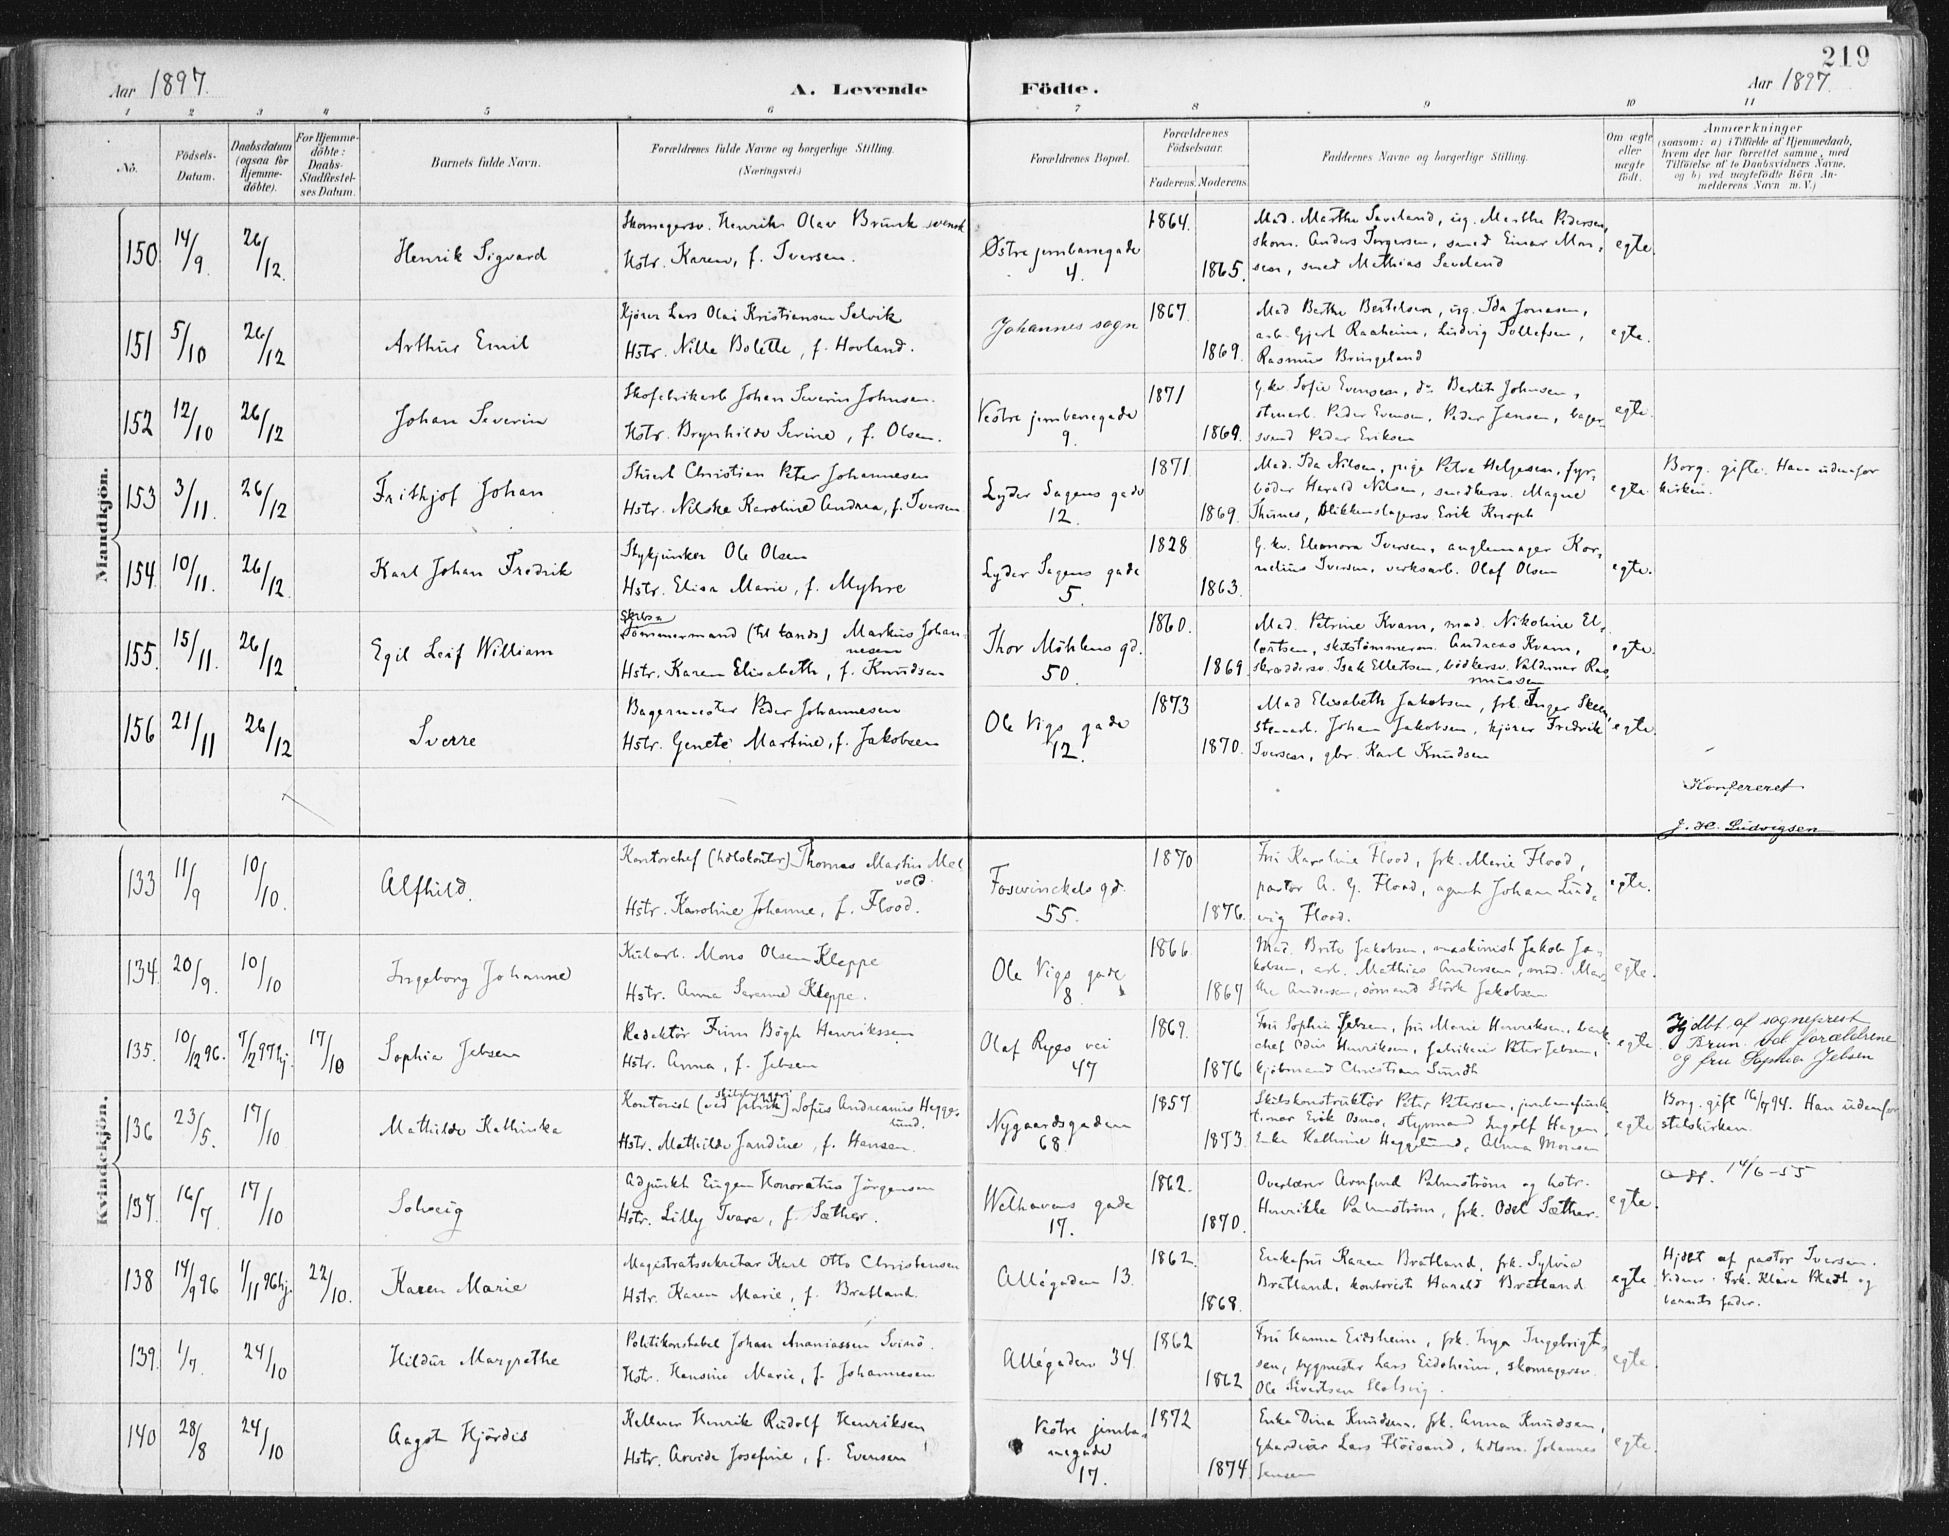 219
Aar 1897.
A. Levende
Födte.
Aar 1897.
1 2 3 4 5 6 7 8 9 10 11
No.
Födsels-
Datum.
Daabsdatum
(ogsaa for
Hjemme-
döbte).
For Hjemme-
döbte:
Daabs-
Stadfæstel-
ses Datum.
Barnets fulde Navn.
Forældrenes fulde Navne og borgerlige Stilling.
(Næringsvei.)
Forældrenes Bopæl.
Forældrenes
Födselsaar.
Faderens.
Moderens.
Faddernes Navne og borgerlige Stilling.
Om ægte
eller
uægte
født.
Anmærkninger
(saasom: a) i Tilfælde af Hjemmedaab,
hvem der har forrettet samme, med
Tilføielse af to Daabsvidners Navne,
og b) ved uægtefödte Börn An-
melderens Navn m. V.)
Mandkjön.
150 14/9. 26/12. Henrik Sigvard
Skomagersv. Henrik Olav Brunk svensk
Hstr. Karen, f. Iversen.
Østre jernbanegade
4.
1864.
1865.
Mad. Marthe Saveland, ug. Marthe Pedersen,
skom. Anders Torgersen, smed Einar Mon,
sen, smed Mathias Saveland
egte.
151 5/10 26/12 Arthur Emil
Kjörer Lars Olai Kristiansen Selvik
Hstr. Nille Bolette, f. Hovland.
Johannes sogn
1867
1869.
Mad Berthe Bertelsen, ug. Ida Jonasen,
arb. Gjert Raaheim, Ludvig Tollefsen,
Rasmus Bringeland
egte.
152 12/10 26/12 Johan Severin
Skofabrikarb Johan Severin Johnsen.
Hstr. Brynhilde Serine, f. Olsen.
Vestre jernbanegade
9.
1871
1869.
G. kv. Sofie Evensen, do Berlith Johnsen,
stenarb. Peder Evensen, Peder Jensen, bager-
svend Peder Eriksen
egte.
153 3/11. 26/12 Frithjof Johan
Stuert Christian Peter Johannesen
Hstr. Nilska Karoline Andrea, f. Iversen
Lyder Sagens gade
12.
1871
1869.
Mad. Ida Nilsen, pige Petra Helgesen, fyr-
böder Harald Nilsen, smedkersv. Magne
Thunes, Blikkenslagersv Erik Knoph
egte.
Borg. gifte. Han udenfor
kirken.
154 10/11. 26/12 Karl Johan Fredrik
Stykjunker Ole Olsen
Hstr. Elisa Marie, f. Myhre
Lyder Sagens gade
5.
1828
1863.
G. kv. Eleonora Iversen, anglemager Kor,
nelius Iversen, verksarb. Olaf Olsen
egte.
155. 15/11. 26/12 Egil Leif William
Skibsa
Tömmermand (til lands) Markus Johan-
nesen
Hstr. Karen Elisabeth, f. Knudsen
Thor Möhlens gd.
50.
1860.
1869
Mad. Petrine Kvam, mad. Nikoline El,
lertsen, skibstömmerm. Andreas Kvam,
skræddersv. Isak Ellertsen, bödkersv. Valdemar Ras,
mussen
egte.
156 21/11 26/12 Sverre
Bagermester Peder Johannesen
Hstr. Genete Martine, f. Jakobsen
Ole Vigs gade
12.
1873
1870.
Mad Elisabeth Jakobsen, frk. Inger Skeen,
stenarb. Johan Jakobsen, kjörer Fredrik
Iversen, gbr. Karl Knudsen
egte.
Konfereret
J. H. Ludvigsen
Kvindekjön.
133 11/9 10/10. Alfhild.
Kontorchef (hdlskontor) Thomas Martin Mel
vold.
Hstr. Karoline Johanne, f. Flood.
Foswinckels gd.
55.
1870
1876.
Fru Karoline Flood, frk. Marie Flood,
pastor A. G. Flood, agent Johan Lud,
vig Flood.
egte.
134 20/9. 10/10 Ingeborg Johanne
Kularb. Mons Olsen Kleppe
Hstr. Anna Serene Kleppe.
Ole Vigs gade
8.
1866
1864
Mad. Brite Jakobsen, maskinist Jakob Ja-
kobsen, arb. Mathias Andersen, mad. Mar,
the Andersen, sömand Störk Jakobsen
egte.
135. 10/12 96. 7/2 97 hj. 17/10 Sophia Jebsen
Redaktör Finn Bögh Henrikssen
Hstr. Anna, f. Jebsen
Olaf Ryes vei
47
1869.
1876
Fru Sophia Jebsen, fru Marie Henriksen, bank
chef Odin Henriksen, fabrikeier Peter Jebsen,
kjöbmand Christian Sundt
egte.
Hjdbt af sogneprest
Krun. Vol forældrene
og fru Sophia Jebsen
136 23/5. 17/10 Mathilde Kathinka
skibsbyggeri
Kontorist (ved fabrik) Sofus Andreanus Hegge,
lund.
Hstr. Mathilde Jandine, f. Hansen.
Nygaardsgaden
68.
1857
1873.
Skibskonstruktör Peter Petersen, jernbanefunk
tionær Erik Osmo, styrmand Ingolf Hagen,
Enke Kathrine Heggelund, Alma Monsen
egte
Borg. gift 16/7 94. Han udenfor
statskirken.
137. 16/7 17/10 Solveig
Adjunkt Eugen Honoratius Jörgensen
Hstr. Lilly Tvara, f. Sæther.
Welhavens gade
17.
1862.
1870.
Overlærer Arnfind Palmström og hstr.
Henrikke Palmström, frk. Odel Sæther.
egte.
Adf. 14/6-55
138 14/9 96 1/11 96 hj. 22/10. Karen Marie
Magistratssekretær Karl Otto Christensen
Hstr. Karen Marie, f. Bratland.
Allégaden 13.
1862.
1868.
Enkefru Karen Bratland, frk. Sylvia
Bratland, kontorist Harald Bratland
egte
Hjdbt af pastor Iversen.
Vidner: Frk. Klara Stadt og
barnets fader.
139. 1/7. 24/10 Hildur Margrethe
Politikonstabel Johan Ananiassen Svinö.
Hstr. Hansine Marie, f. Johannesen
Allégaden 34.
1862
1862
Fru Hanna Eidsheim, frk. Inga Ingebrigt,
sen, bygmester Lars Eidsheim, skomagersv.
Ole Sivertsen Stolsvig.
egte.
140 28/8 24/10 Aagot Hjördis
Kellner Henrik Rudolf Henriksen
Hstr. Arvida Josefine, f. Evensen
Vestre jernba,
negade
17.
1872
1874.
Enke Dina Knudsen, frk. Anna Knudsen,
Lars Flöisand, hdlsm. Johannes
Jensen
egte.